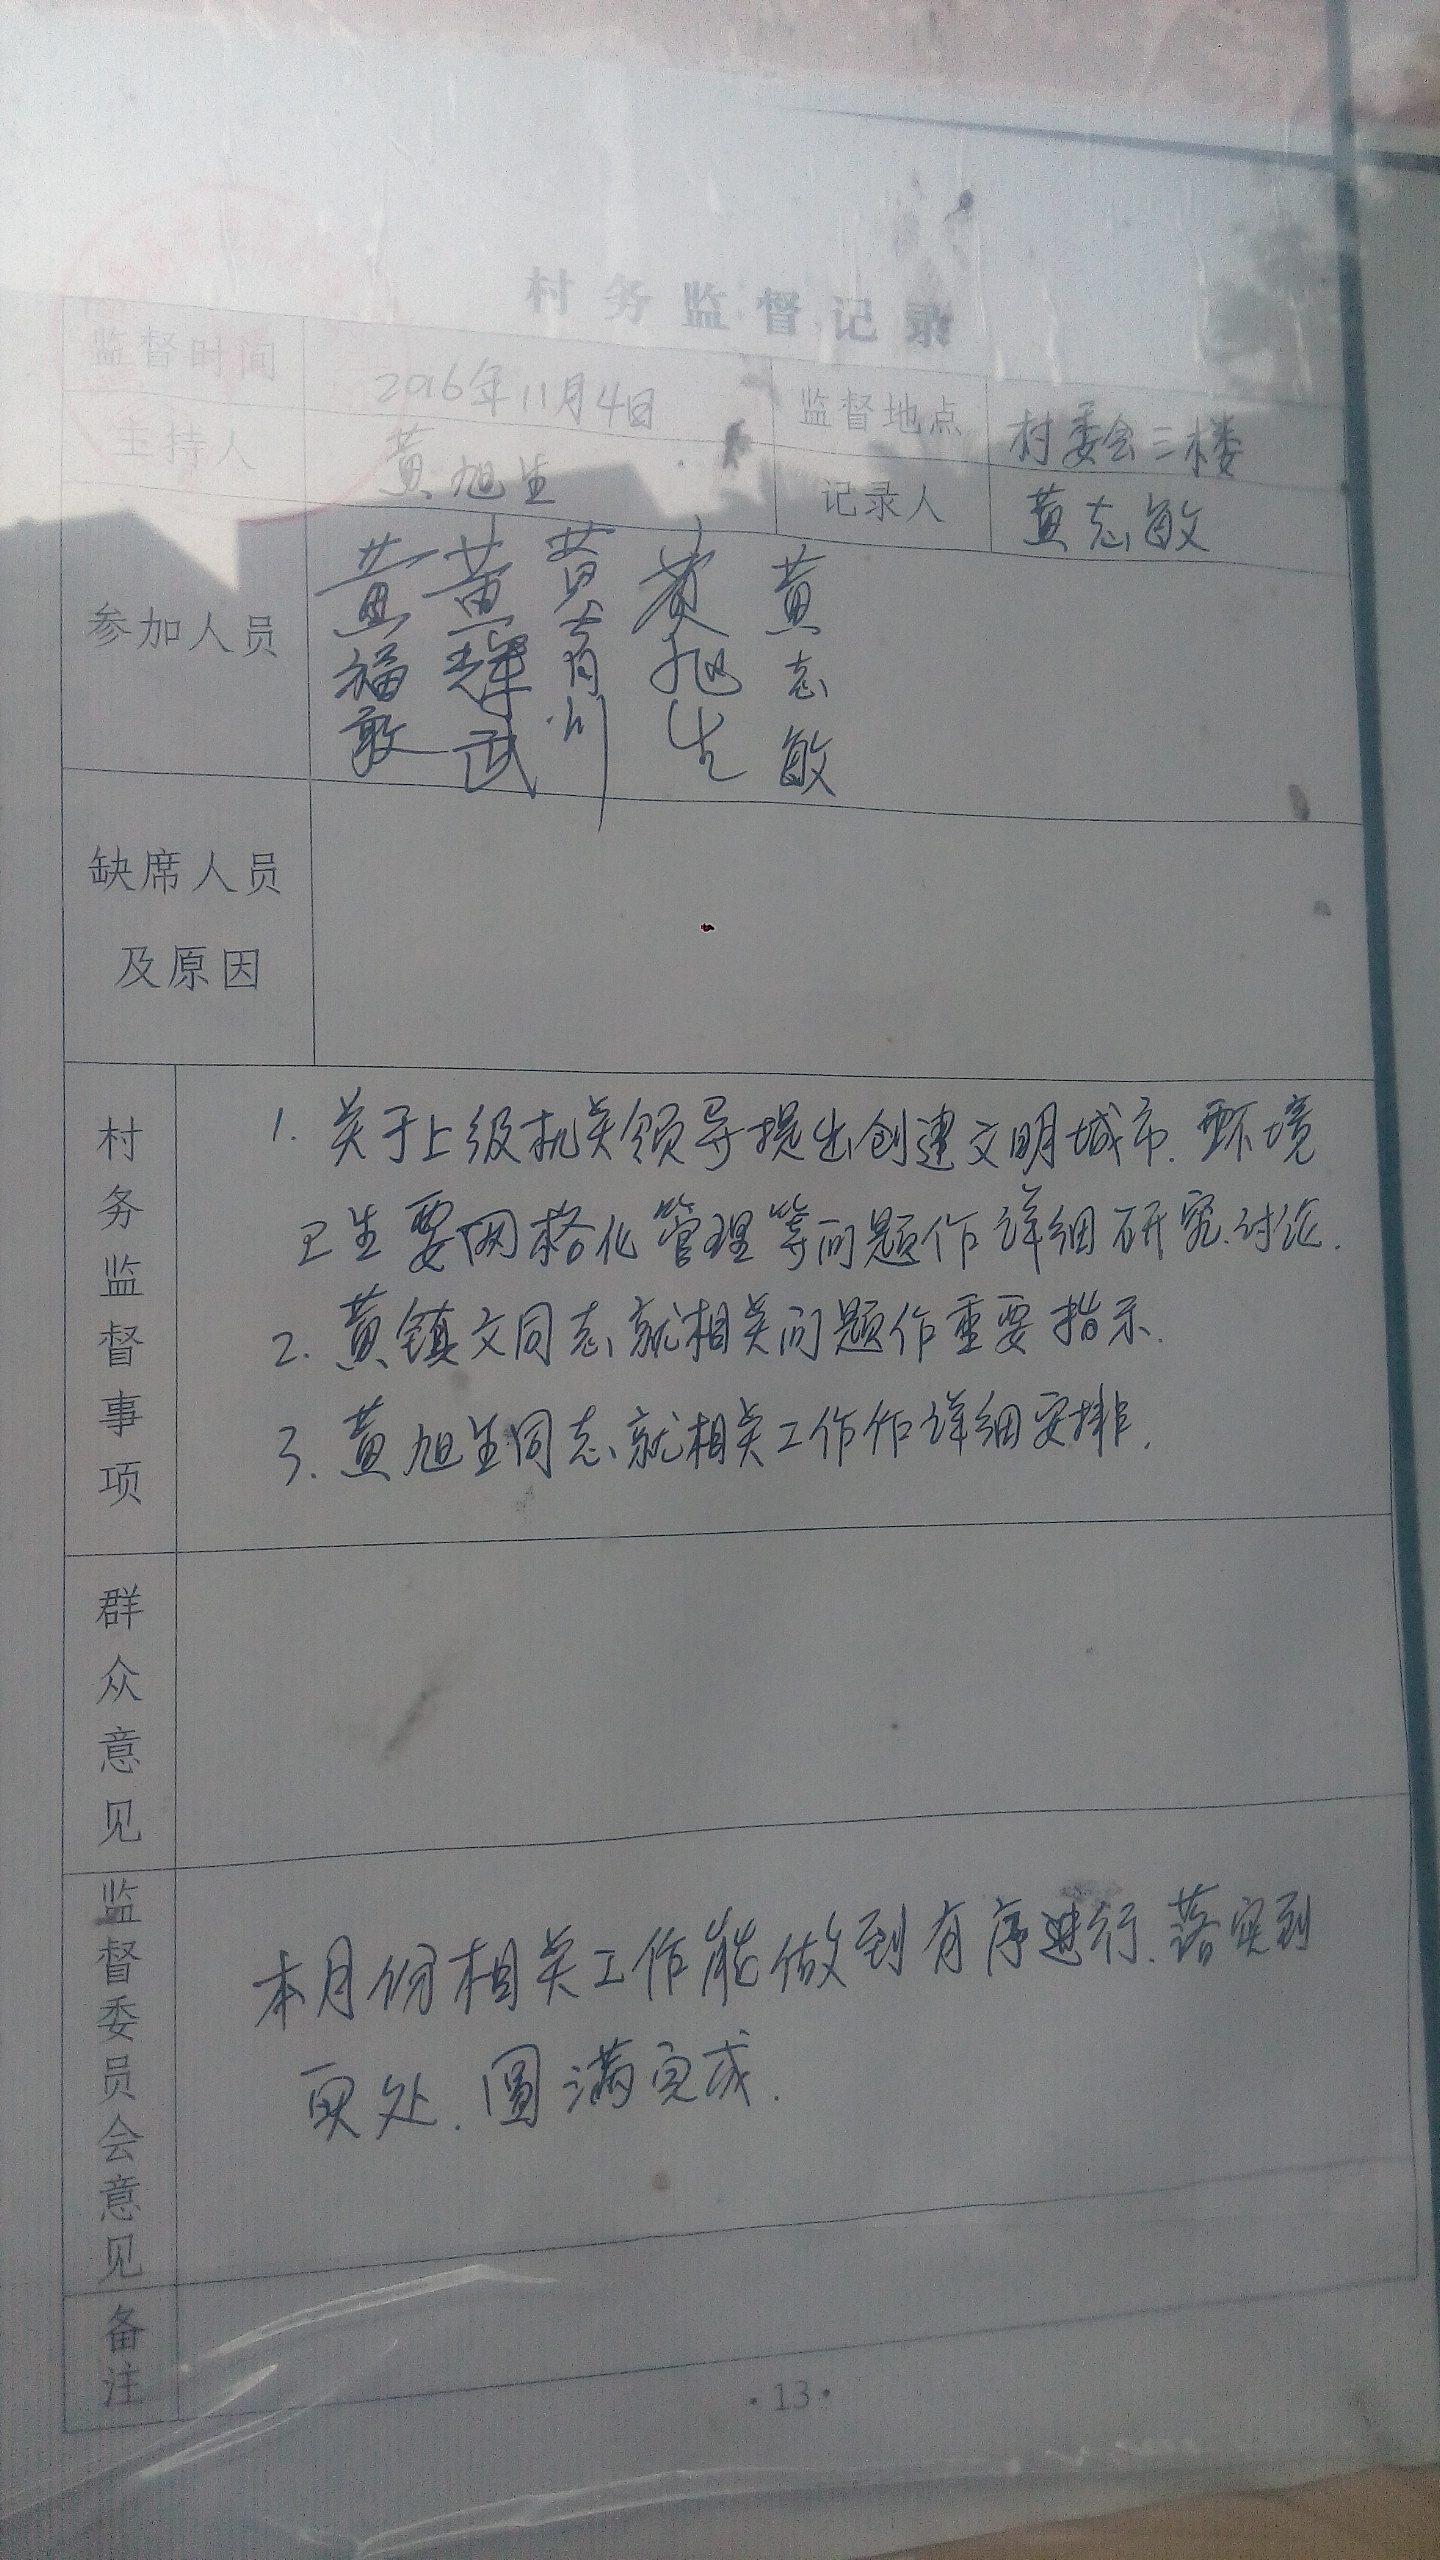 村务监督记录
监督时间 2016年11月4日 监督地点 村委会二楼
主持人 黄旭生 记录人 黄志敏
参加人员 黄福敢 黄辉武 黄育川 黄旭生 黄志敏
缺席人员
及原因
村务监督事项
1. 关于上级机关领导提出创建文明城市.环境
卫生要网格化管理等问题作详细研究.讨论.
2. 黄镇文同志就相关问题作重要指示.
3. 黄旭生同志就相关工作作详细安排.
群众意见
监督委员会意见
本月份相关工作能做到有序进行.落实到
实处.圆满完成.
备注
·13·